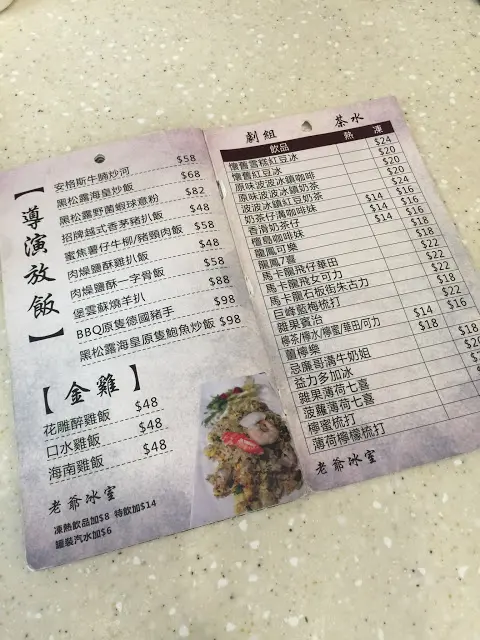 【導演放飯】
安格斯牛腩炒河 $58
黑松露海皇炒飯 $68
黑松露野菌蝦球意粉 $82
招牌越式香茅豬扒飯 $48
蜜焦薯仔牛柳/豬頸肉飯 $58
肉燥鹽酥雞扒飯 $48
肉燥鹽酥一字骨飯 $58
堡雲蘇燒羊扒 $88
BBQ原隻德國豬手 $98
黑松露海皇原隻鮑魚炒飯 $98
【金雞】
花雕醉雞飯 $48
口水雞飯 $48
海南雞飯 $48
老爺冰室
凍熱飲品加$8 特飲加$14
罐裝汽水加$6
劇組 茶水
飲品 熱 凍
懷舊雪糕紅豆冰 $24
懷舊紅豆冰 $20
原味波波冰鎮咖啡 $20
原味波波冰鎮奶茶 $20
波波冰鎮紅豆奶茶 $24
奶茶仔溝咖啡妹 $14 $16
香滑奶茶仔 $14 $16
檀島咖啡妹 $14 $16
龍鳳可樂 $18
龍鳳7喜 $18
馬卡龍飛仔華田 $22
馬卡龍飛女可力 $22
馬卡龍石板街朱古力 $22
巨峰藍梅梳打 $18
雜果賓治 $22
檸茶/檸水/檸蜜/華田/可力 $14 $16
薑檸樂 $18
忌廉哥溝牛奶姐 $18
益力多加冰
雜果薄荷七喜
菠蘿薄荷七喜
檸蜜梳打
薄荷檸檬梳打
老爺冰室